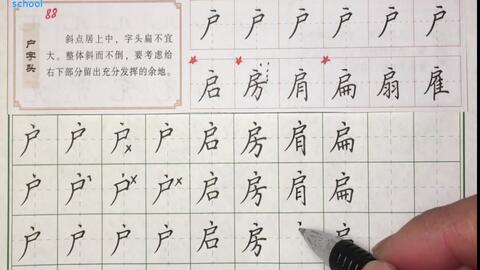 school
88
户字头
斜点居上中，字头扁不宜
大。整体斜而不倒，要考虑给
右下部分留出充分发挥的余地。
户 户 户 户 户 户
启 房 肩 扁 扇 雇
户 户 户 户 启 房 肩 扁
户 户 户 户 启 房 肩 扁
户 户 户 户 启 房